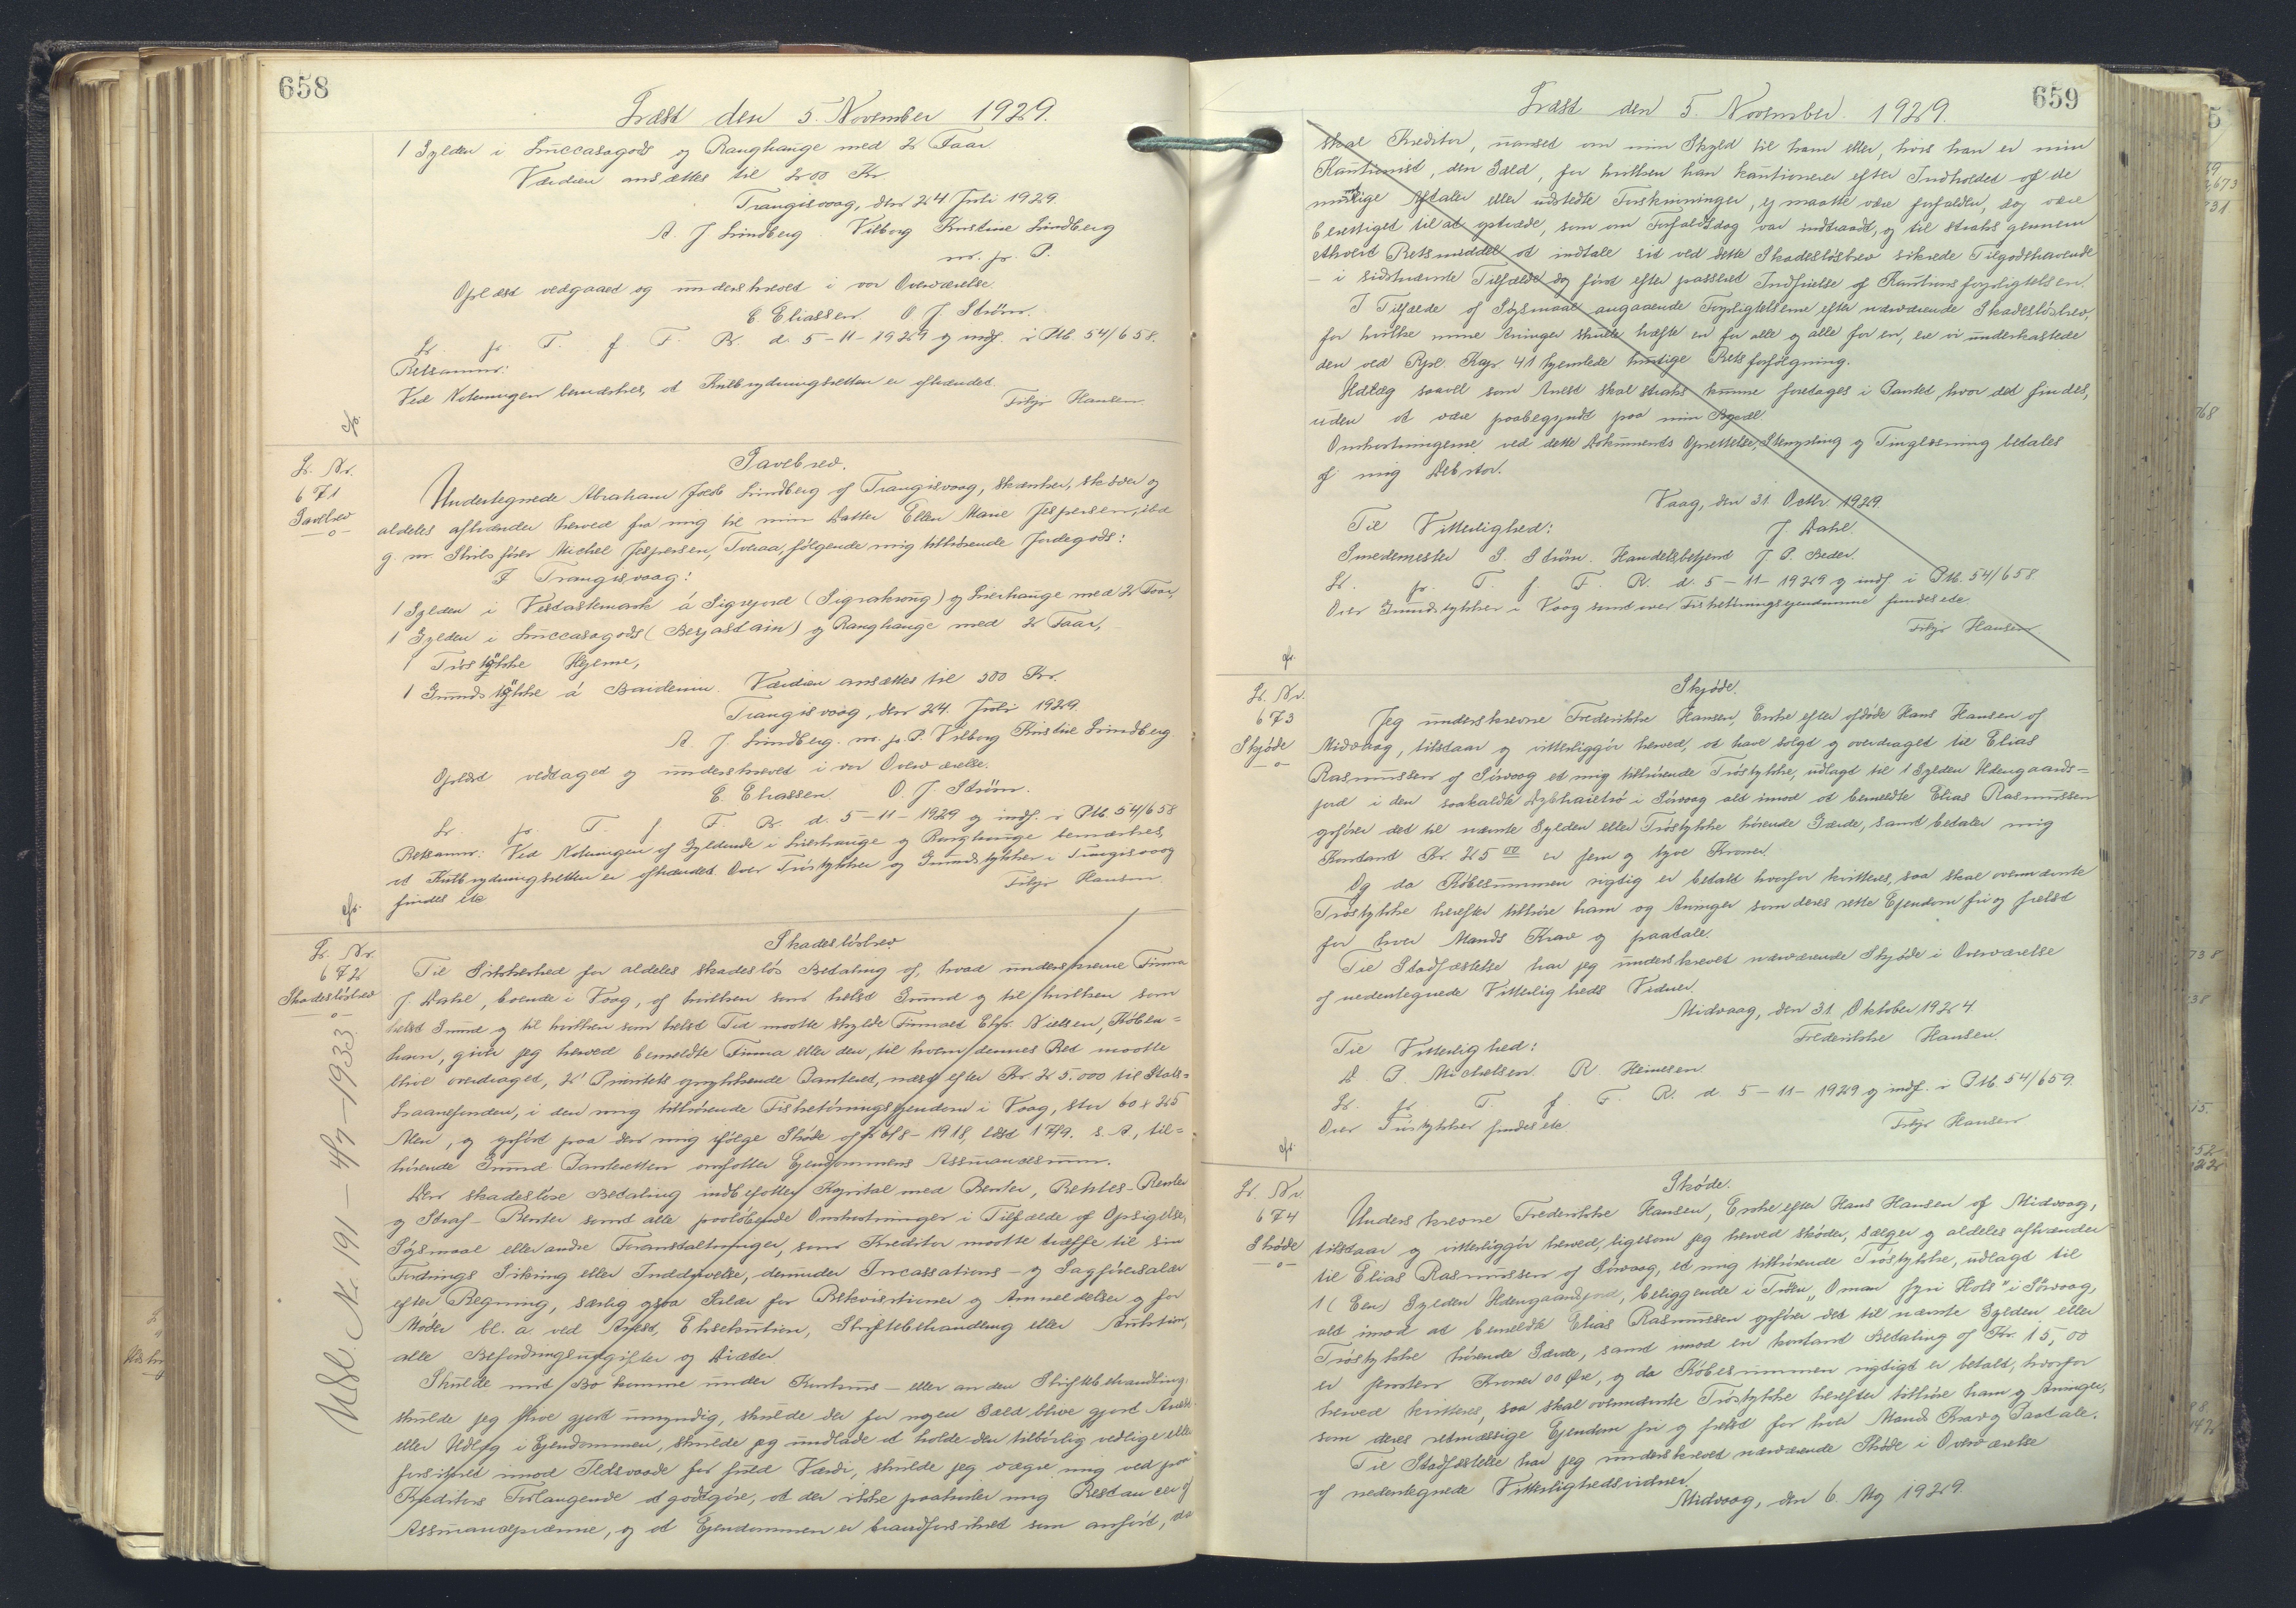 658
Læst den 5. November 1929.
1 Gylden i Luccasagods og Ranghauge med 2 Faar
Værdien ansættes til 200 Kr.
Trangisvaag, den 24 Juli 1929.
A. J. Lindberg Vilborg Kristine Lindberg
m. p. P.
Oplæst vedgaaed og underskreved i vor Overværelse.
E. Eliassen O. J. Ström.
L. p. T. f. F. R. d. 5-11-1929 og indf. i Ptb. 54/658.
Retsanm:
Ved Noteringen bemærkes, at Kulbrydningsretten er afhændet.
Filip Hansen
L. Nr.
671
Gavebrev
Gavebrev.
Undertegnede Abraham Jacob Lindberg af Trangisvaag, skænker, skøder og
aldeles afhænder herved fra mig til min Datter Ellen Marie Jespersen,
g. m. Skibsfører Michel Jespersen, Tveraa, følgende mig tilhørende Jordegods:
I Trangisvaag:
1 Gylden i Vestastemark á Sigrejord og Lierhauge med 2 Faar,
1 Gylden i Luccasagods (Berjastain) og Ranghauge med 2 Faar,
1 Tröstykke Hejeme,
1 Grundstykke á Baidenin. Værdien ansættes til 300 Kr.
Trangisvaag, den 24. Juli 1929.
A. J. Lindberg. m. p. P. Vilborg Kristine Lindberg.
Oplæst vedtaged og underskreved i vor Overværelse.
E. Eliassen O. J. Ström.
L. p. T. f. F. R. d. 5-11-1929 og indf. i Ptb. 54/658
Retsanm: Ved Noteringen af Gyldende i Lierhauge og Ranghauge bemærkes,
at Kulbrydningsretten er afhændet. Over Tröstykker og Grundstykker i Trangisvaag
findes ete Filip Hansen
L. Nr.
672
Skadesløsbrev
Udsl. Nr. 191 — 4/7 — 1933.
Skadesløsbrev
Til Sikkerhed for aldeles skadesløs Betaling af, hvad underskrevne Firma
J. Dahl, boende i Vaag, af hvilken som helst Grund og til hvilken som
helst Grund og til hvilken som helst Tid maatte skylde Firmaet Chr. Nielsen, Køben-
havn, giver jeg herved bemeldte Firma eller den, til hvem dennes Ret maatte
blive overdraget, 2' Prioritets oprykkende Panteret, næst efter Kr. 25.000 til Stats-
Laanefonden, i den mig tilhørende Fisketörringsejendom i Vaag, stor 60 x 25
Alen, og opført paa den mig ifølge Skøde af 6/8-1918, læst 17/9. s. A., til-
hørende Grund. Panteretten omfatter Ejendommens Assurancesum.
Den skadesløse Betaling indbefatter Kapital med Renter, Rentes-Renter
og Straf-Renter samt alle paaløbende Omkostninger i Tilfælde af Opsigelse,
Søgsmaal eller andre Foranstaltninger, som Kreditor maatte træffe til sin
Fordrings Sikring eller Inddrivelse, derunder Incassations- og Sagførersalær
efter Regning, særlig ogsaa Salær for Rekvisitioner og Anmeldelser og for
Møder bl. a. ved Arrest, Eksekution, Skiftebehandling eller Auktion,
alle Befordringsudgifter og Diæter.
Skulde mit Bo komme under Konkurs- eller anden Skiftebehandling,
skulde jeg blive gjort umyndig, skulde der for nogen Gæld blive gjort Arrest
eller Udlæg i Ejendommen, skulde jeg undlade at holde den tilbørlig vedlige eller
forsikret imod Ildsvaade for fuld Værdi, skulde jeg vægre mig ved paa
Kreditors Forlangende at godtgøre, at der ikke paahviler mig Restancer af
Assurancepræmie, og at Ejendommen er brandforsikret som anført, da
659
Læst den 5. November 1929.
skal Kreditor, uanset om min Skyld til ham eller, hvis han er min
Kautionist, den Gæld, for hvilken han kautionerer efter Indholdet af de
mulige Aftaler eller udstedte Forskrivninger, ej maatte være forfalden, dog være
berettiget til at optræde, som om Forfaldsdag var indtraadt, og til straks gennem
ethvert Retsmiddel at indtale sit ved dette Skadesløsbrev sikrede Tilgodehavende
- i sidstnævnte Tilfælde dog først efter passeret Indfrielse af Kautionsforpligtelsen.
I Tilfælde af Søgsmaal angaaende Forpligtelserne efter nærværende Skadesløsbrev,
for hvilke mine Arvinger skulle hæfte en for alle og alle for en, ere vi underkastede
den ved Rpl. Kap. 41 hjemlede hurtige Retsforfølgning.
Udlæg saavel som Arrest skal straks kunne foretages i Pantet, hvor det findes,
uden at være paabegyndt paa min Bopæl.
Omkostningerne ved dette Dokuments Oprettelse, Stempling og Tinglæsning betales
af mig Debitor.
Vaag, den 31. Octbr. 1929.
Til Vitterlighed: J. Dahl.
Smedemester S. Ström. Handelsbetjent J. P. Beder.
L. p. T. f. F. R. d. 5-11-1929 og indf. i Ptb. 54/658
Over Grundstykker i Vaag samt over Fisketörringsejendomme findes ete.
Filip Hansen
L. Nr.
673
Skjøde
Skjøde.
Jeg underskrevne Frederikke Hansen, Enke efter afdøde Hans Hansen af
Midvaag, tilstaar og vitterliggør herved, at have solgt og overdraget til Elias
Rasmussen af Sörvaag et mig tilhørende Tröstykke, udlagt til 1 Gylden Udengaards-
jord i den saakaldte i Sörvaag alt imod at bemeldte Elias Rasmussen
opfører det til nævnte Gylden eller Tröstykke hørende Gærde, samt betaler mig
Kontant Kr. 25 00 er fem og tyve Kroner.
Og da Købesummen rigtig er betalt hvorfor kvitteres, saa skal ovennævnte
Tröstykke herefter tilhøre ham og Arvinger som deres rette Ejendom fri og frelst
for hver Mands Krav og paatale.
Til Stadfæstelse har jeg underskrevet nærværende Skjøde i Overværelse
af nedentegnede Vitterligheds Vidner.
Midvaag, den 31. Oktober 1924.
Til Vitterlighed: Frederikke Hansen.
D. P. Michelsen. R. Heinesen.
L. p. T. f. F. R. d. 5-11-1929 og indf. i Ptb. 54/659.
Over Tröstykker findes ete Filip Hansen
L. Nr.
674
Skøde
Skøde.
Underskrevne Frederikke Hansen, Enke efter Hans Hansen af Midvaag,
tilstaar og vitterliggør herved, ligesom jeg herved skøder, sælger og aldeles afhænder
til Elias Rasmussen af Sörvaag, et mig tilhørende Tröstykke, udlagt til
1 (Een) Gylden Udengaardsjord, beliggende i Tröen „Oman fyri Hols" i Sörvaag,
alt imod at bemeldte Elias Rasmussen opfører det til nævnte Gylden eller
Tröstykke hørende Gærde, samt imod en kontant Betaling af Kr. 15,00
er femten Kroner 00 Øre, og da Købesummen rigtigt er betalt, hvorfor
herved kvitteres, saa skal ovennævnte Tröstykke herefter tilhøre ham og Arvinger,
som deres retmæssige Ejendom fri og frelst for hver Mands Krav og Paatale.
Til Stadfæstelse har jeg underskrevet nærværende Skøde i Overværelse
af nedentegnede Vitterlighedsvidner
Midvaag, den 6. Maj 1929.